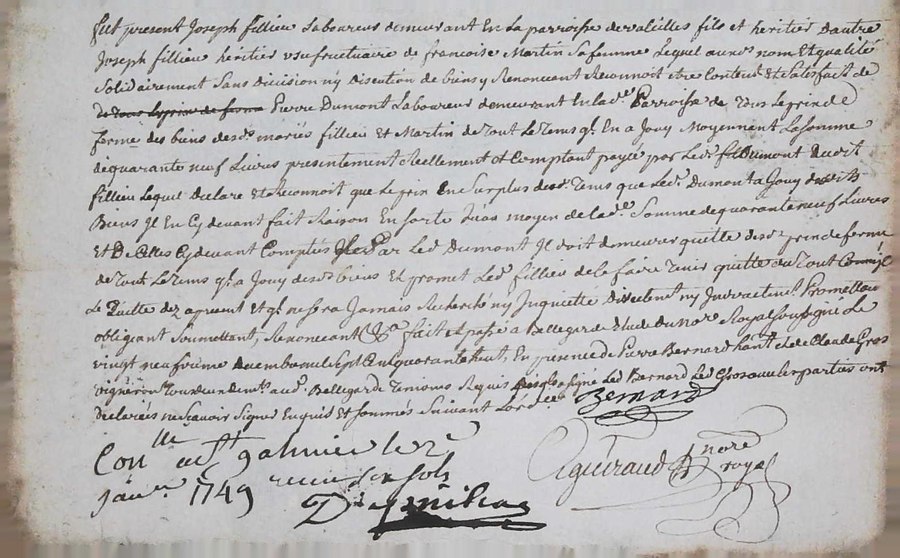 fut present Joseph fillieu Laboureur demeurant En La parroisse de valeilles fils et heritier d'autre
Joseph fillieu heritier usufructuaire de francoise Martin Sa femme Lequel aux nom Et qualité
Solidairement Sans division ny discution de biens y Renoncant Reconnoit être Content Et Satisfait de
de tous le prix de ferme Pierre Dumont Laboureur demeurant En lad.e Parroisse de tous Le prix de
ferme des biens desd. mariés fillieu Et Martin de tout Le tems q.l En a Jouy Moyennant La Somme
de quarante neuf Livres presentement Reellement et Comptant payée par Led. Dumont audit
fillieu Lequel declare Et Reconnoit que Le prix En Surplus des tems que Led. Dumont a Jouy desdits
Biens Il En Cy devant fait Raison En Sorte qu'au moyen de lad.e Somme de quarante neuf Livres
Et De Celles Cy devant Comptés par Led. Dumont Il doit demeurer quitte desd. prix de ferme
de tout Le tems q.l a Jouy desd. biens Et promet Led. fillieu de le faire tenir quitte du tout
Le Quitte dez apresent Et q.l ne Sera Jamais Recherché ny Inquieté directement ny Indirectement Promettant
obligeant Soumettant, Renoncant &.a fait Et passé a Bellegarde Etude du No.re Royal Soussigné Le
vingt neufieme decembre mil Sept Cent quarante huit, En presence de Pierre Bernard Et de Claude Gros
vigneron tous deux demt. aud. Bellegarde temoins Requis Led. Bernard Led. Gros avec les parties ont
declarés ne Scavoir Signer Enquis Et Sommés Suivant Lord.ce
Bernard
Con.lle a St galmier le 2e
Janv.er 1749 receu six Sols
Aguiraud no.re
royal